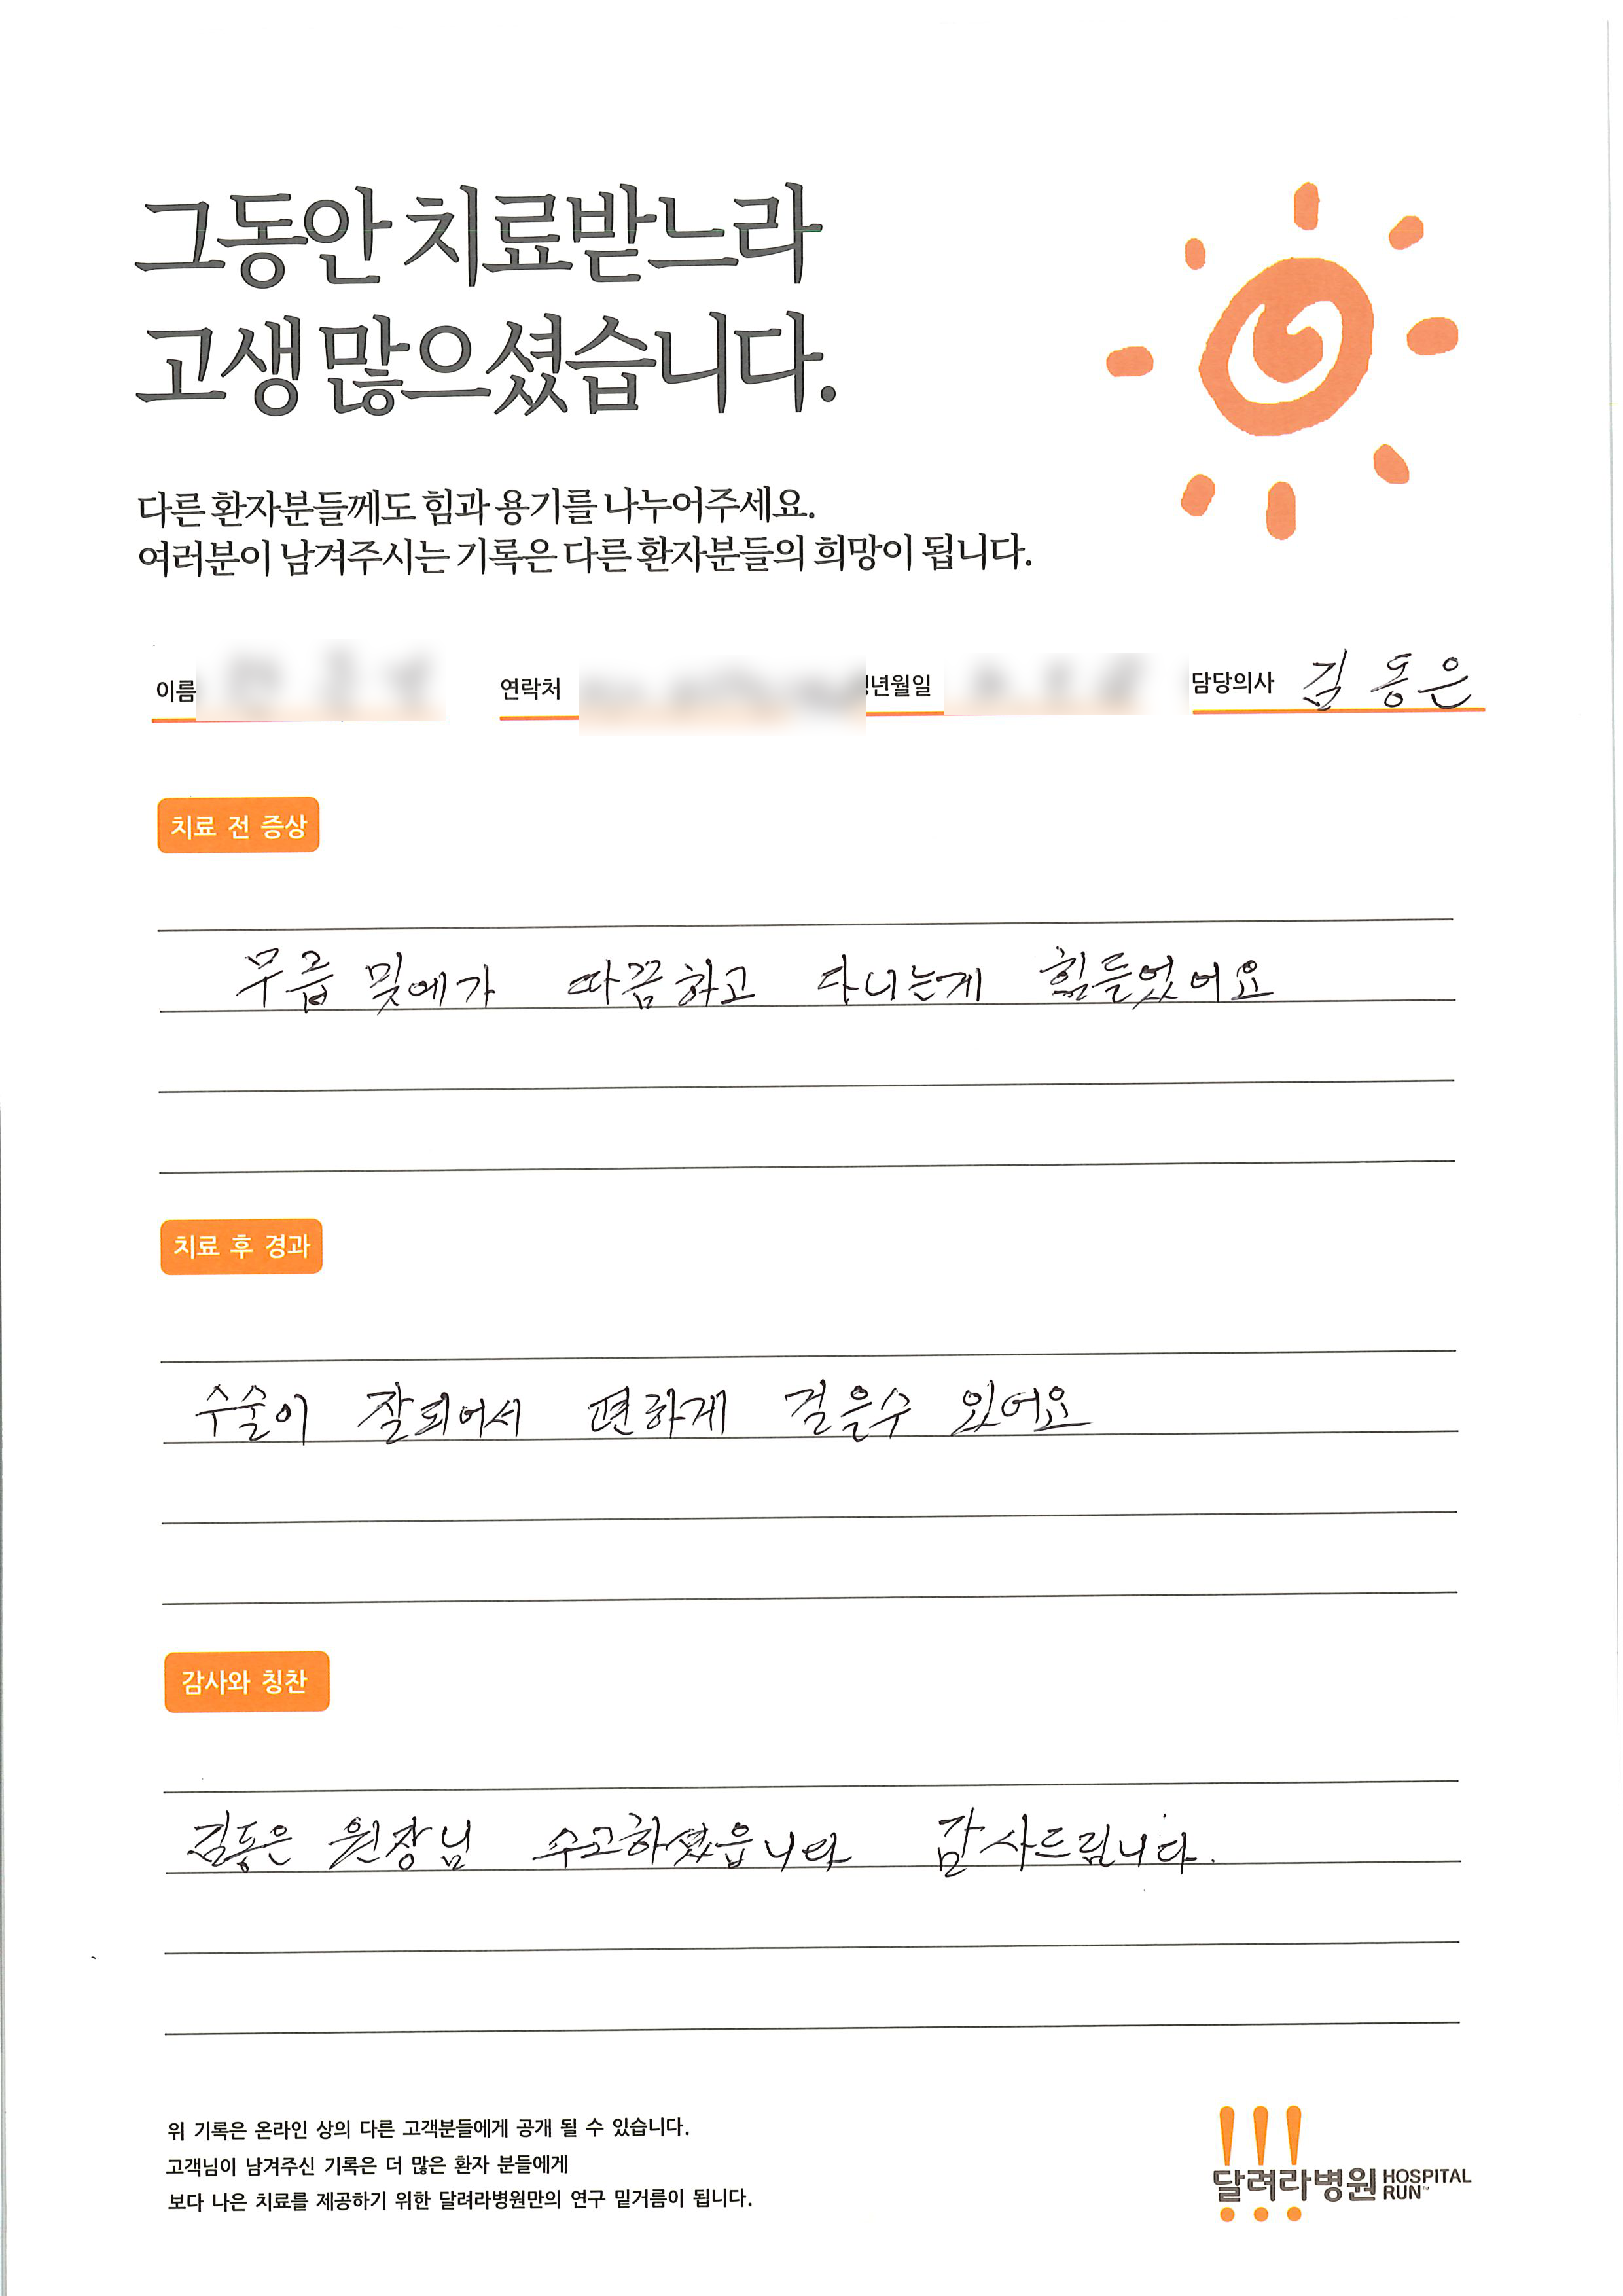 그동안 치료받느라
고생 많으셨습니다.
다른 환자분들께도 힘과 용기를 나누어주세요.
여러분이 남겨주시는 기록은 다른 환자분들의 희망이 됩니다.
이름 연락처 년월일 담당의사 김동은
치료 전 증상
무릅 밎에가 따끔하고 다니는게 힘들었어요
치료 후 경과
수술이 잘되어서 편하게 걸을수 있어요
감사와 칭찬
김동은 원장님 수고하셨읍니다 감사드립니다.
위 기록은 온라인 상의 다른 고객분들에게 공개 될 수 있습니다.
고객님이 남겨주신 기록은 더 많은 환자 분들에게
보다 나은 치료를 제공하기 위한 달려라병원만의 연구 밑거름이 됩니다.
!!!
달려라병원 HOSPITAL
RUN™